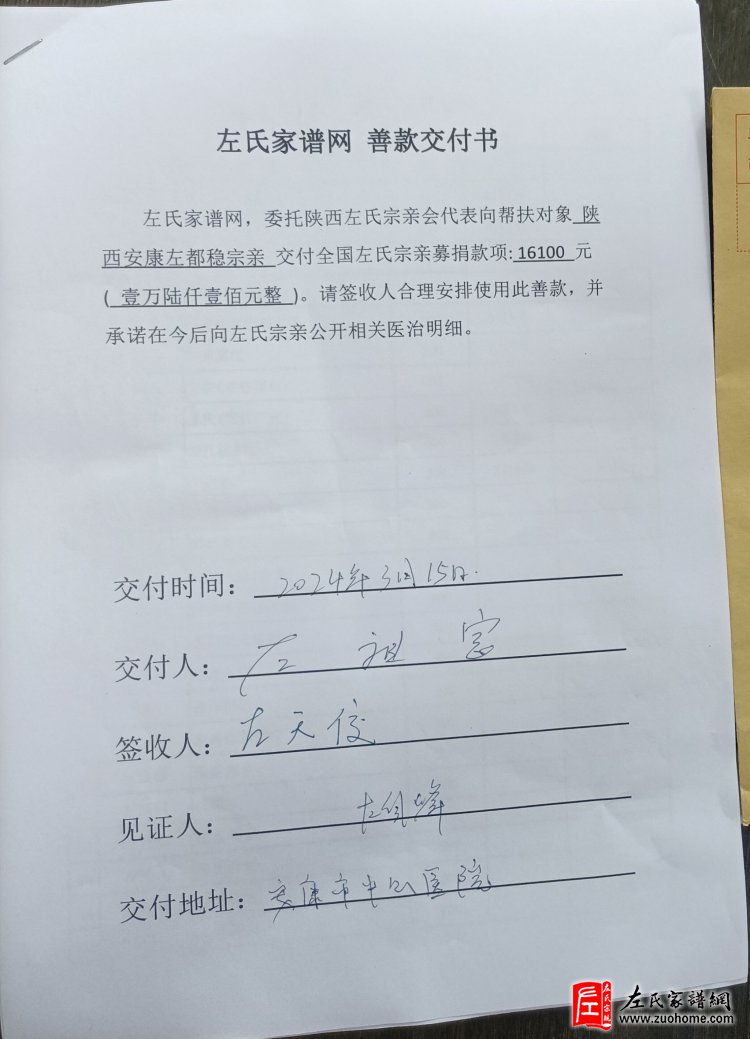 左氏家谱网 善款交付书
左氏家谱网，委托陕西左氏宗亲会代表向帮扶对象 陕
西安康左都稳宗亲 交付全国左氏宗亲募捐款项: 16100 元
( 壹万陆仟壹佰元整 )。请签收人合理安排使用此善款，并
承诺在今后向左氏宗亲公开相关医治明细。
交付时间： 2024年3月15日.
交付人： 左祖
签收人： 左天俊
见证人： 左
交付地址： 安康市中心医院
左氏家谱網
www.zuohome.com